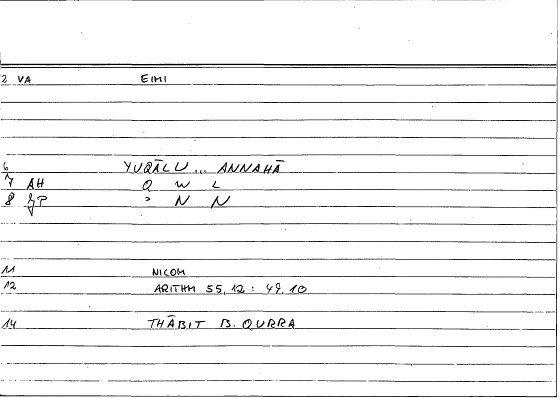 2 VA EIMI
6 YUQĀLU ... ANNAHĀ
7 AH Q W L
8 ʾ N N
11 NICOM
12 ARITHM 55, 12 : 49. 10
14 THĀBIT B. QURRA